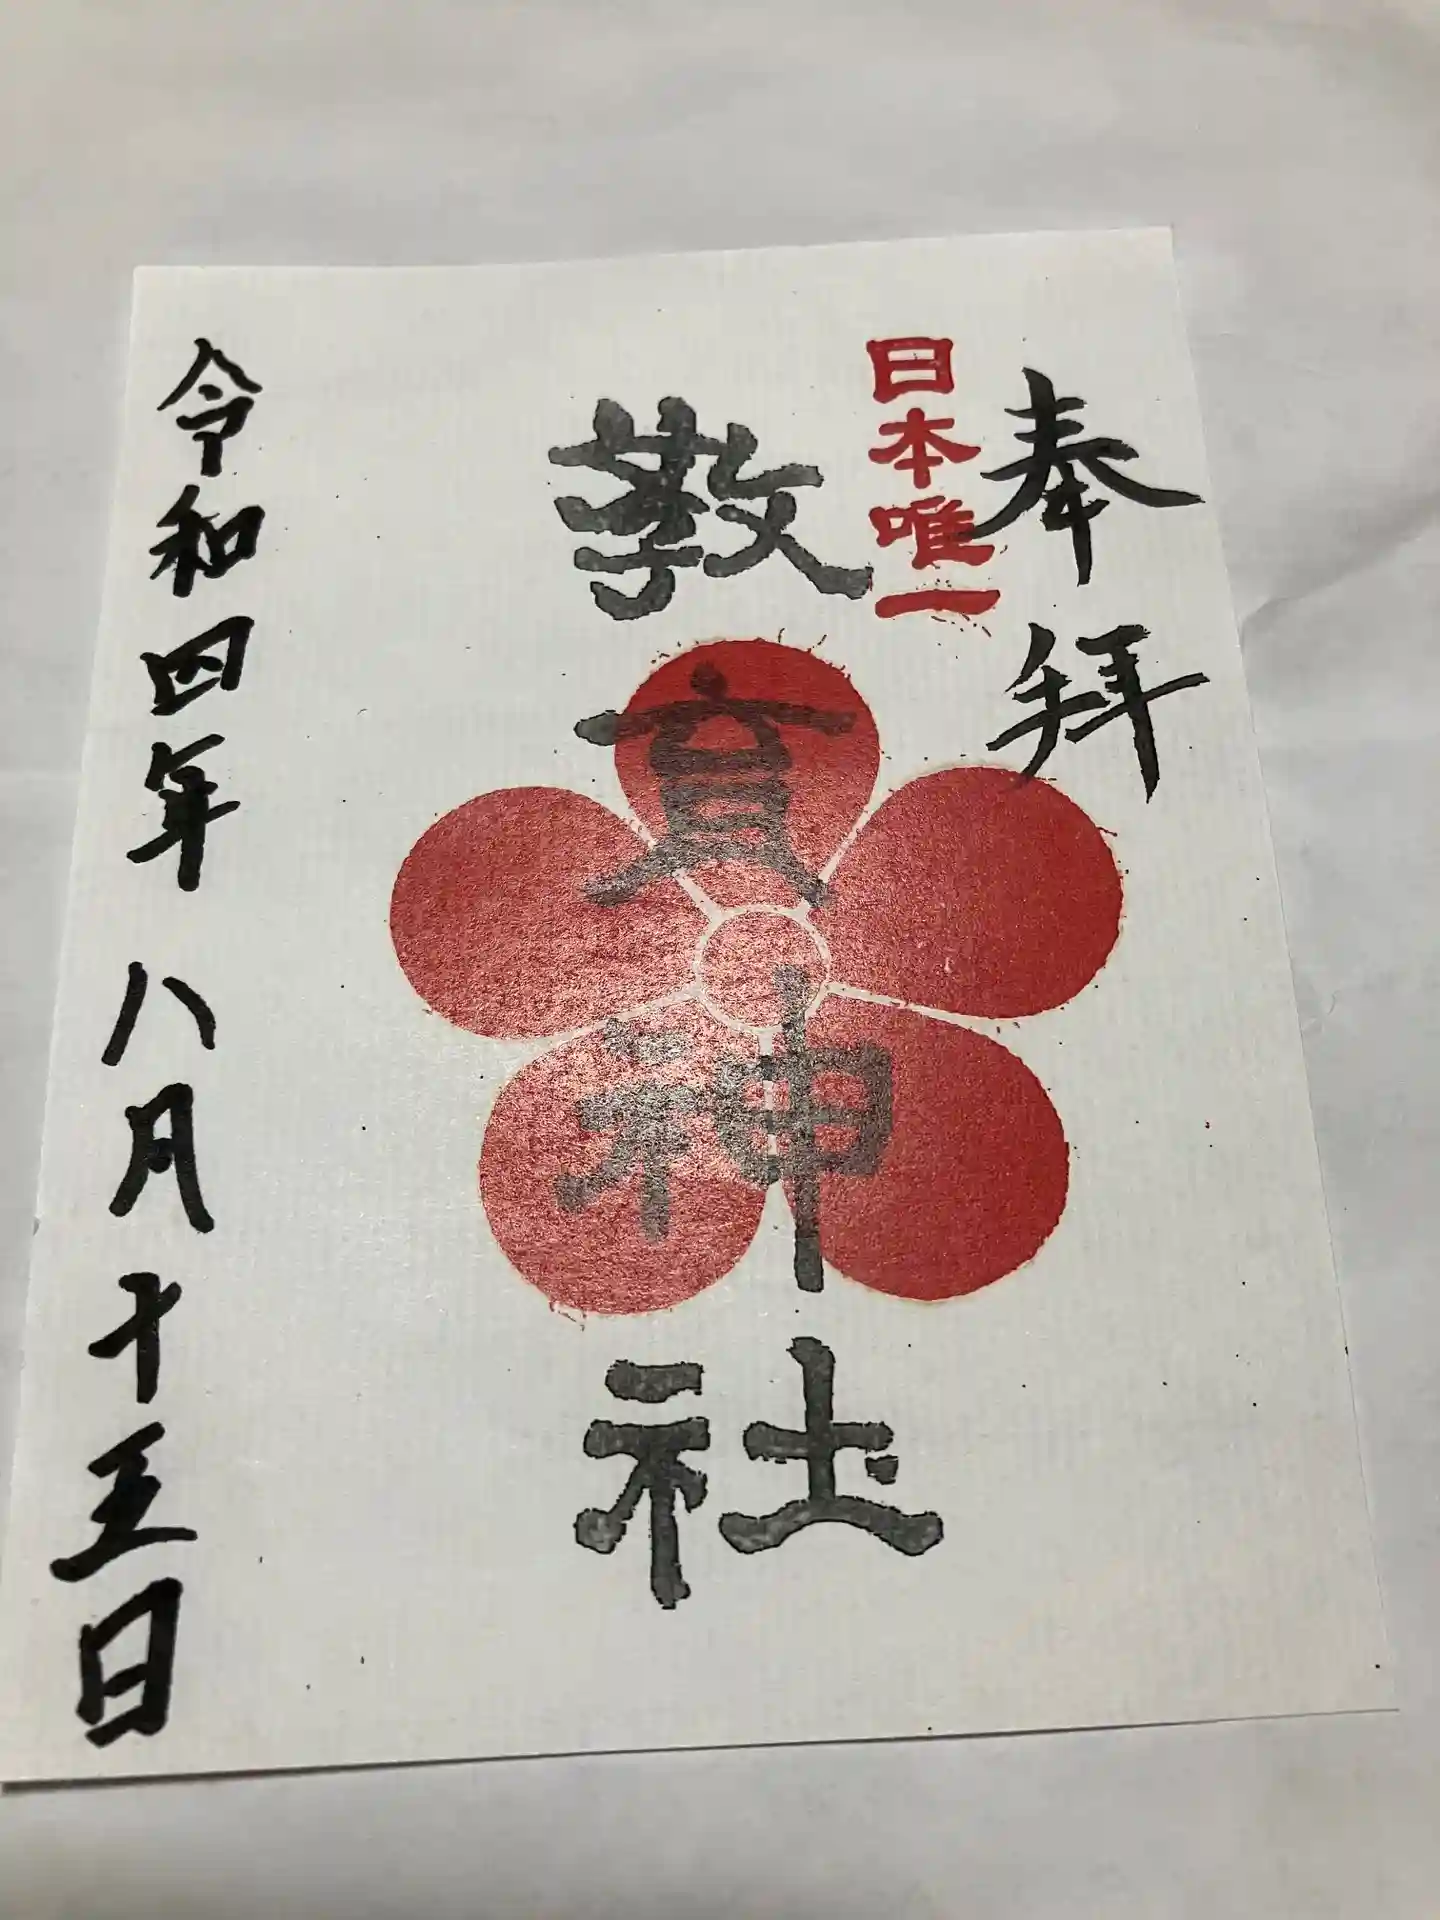 奉拝
日本唯一
敎育神社
令和四年八月十五日